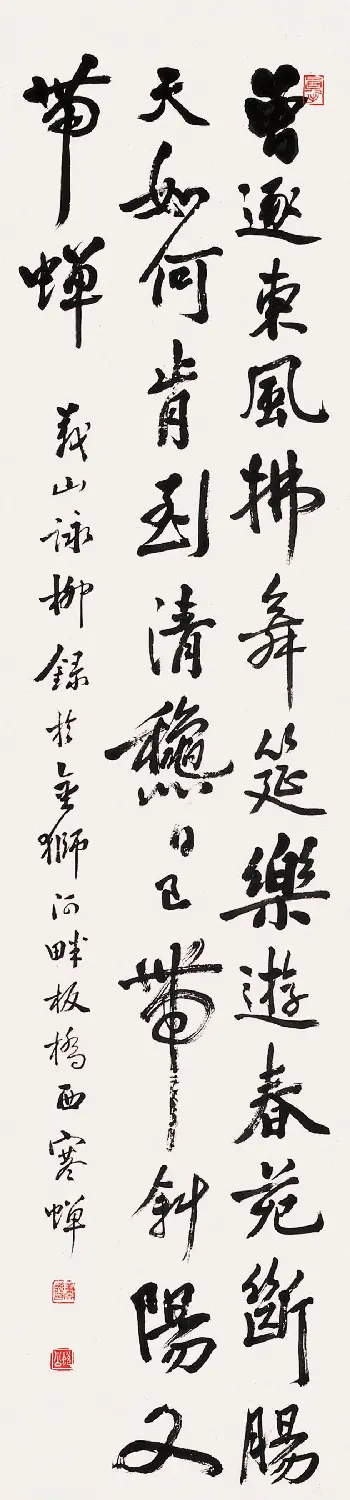 曾逐東風拂舞筵樂遊春苑斷腸
天如何肯到清穐日已帶斜陽又
帶蟬
義山詠柳錄於金獅河畔板橋西寒蟬